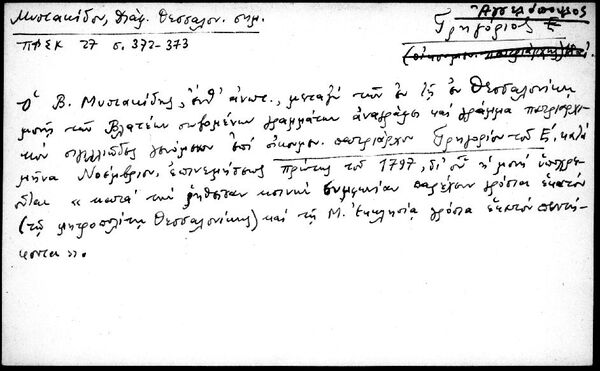 Μυστακίδου, Διάφ. Θεσσαλον. σημ.
Ἀγγελόπουλος
Γρηγόριος Ε΄
ΠΑΣΚ 27 σ. 372-373
ὁ Β. Μυστακίδης, ἔνθ' ἀνωτ., μεταξὺ τῶν ἐν τῇ ἐν Θεσσαλονίκῃ
μονῇ τῶν Βλατέων σωζομένων γραμμάτων ἀναγράφει καὶ γράμμα πατριαρχι-
κὸν σιγιλλιῶδες γενόμενον ἐπὶ οἰκουμ. πατριάρχου Γρηγορίου τοῦ Ε΄, κατὰ
μῆνα Νοέμβριον, ἐπινεμήσεως πρώτης τοῦ 1797, δι' οὗ ἡ μονὴ ὑποχρε-
οῦται « κατὰ τὴν ῥηθεῖσαν κοινὴν συμφωνίαν παρέχειν γρόσια ἑκατὸν
(τῷ μητροπολίτῃ Θεσσαλονίκης) καὶ τῇ Μ. Ἐκκλησίᾳ γρόσια ἑκατὸν πεντή-
κοντα ».